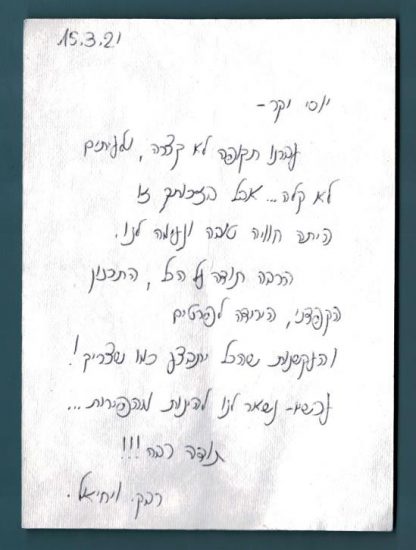 15.3.21
יוסי יקר-
עברנו תקופה לא קצרה, ולעיתים
לא קלה... אבל בזכותך זו
היתה חוויה טובה ונעימה לנו.
הרבה תודה על הכל, התכנון
הקפדני, הירידה לפרטים
והעקשנות שהכל יתבצע כמו שצריך!
עכשיו- נשאר לנו להינות מהפירות...
תודה רבה!!!
רבקה ויחיאל.